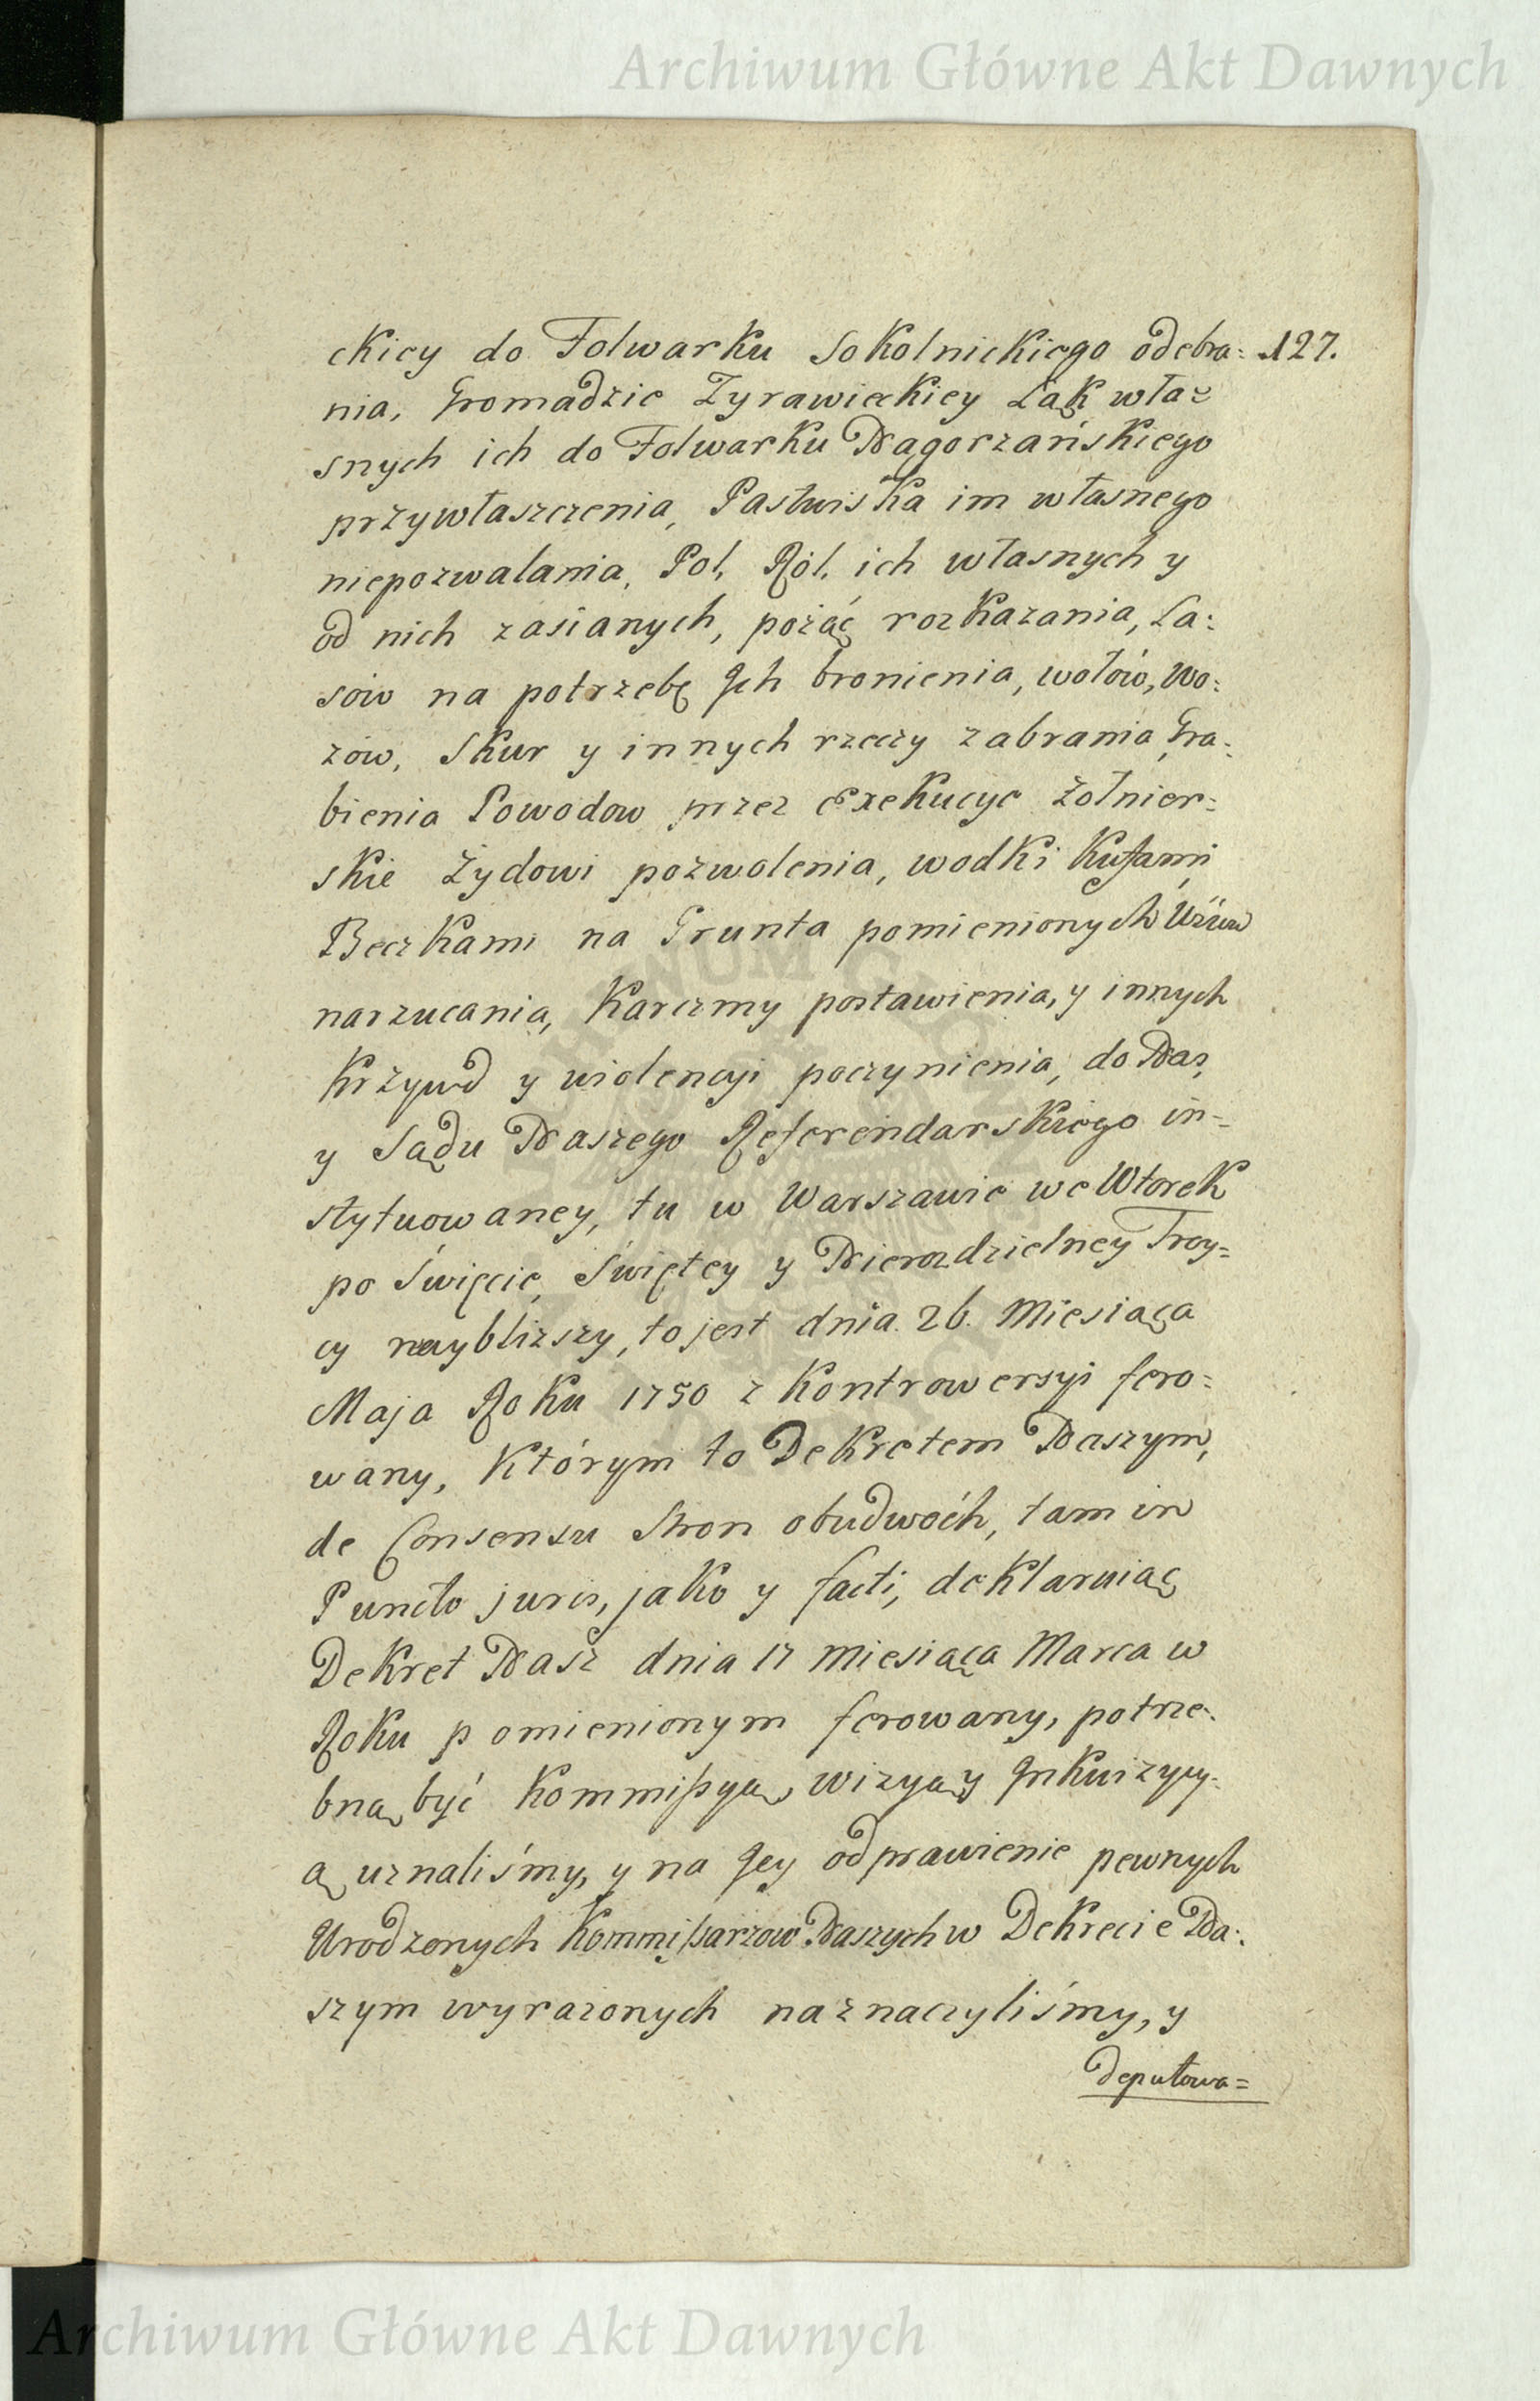 Archiwum Główne Akt Dawnych
ckiey do Folwarku Sokolnickiego odebra= 127.
nia, Gromadzie Zyrawieckiey Łąk wła=
snych ich do Folwarku Nagorzańskiego
przywłaszczenia, Pastwiska im własnego
niepozwalania, Pol, Ról, ich własnych y
od nich zasianych, pożąć rozkazania, La=
sów na potrzebę Ich bronienia, wołów, Wo=
zów, Skur y innych rzeczy zabrania, Gra=
bienia Powodow przez Exekucye Żołnier=
skie Żydowi pozwolenia, wodki Kufami,
Beczkami na Grunta pomienionych Wsiów
narzucania, Karczmy postawienia, y innych
Krzywd y violencyi poczynienia, do Nas,
y Sądu Naszego Referendarskiego in=
stytuowaney, tu w Warszawie we Wtorek
po Święcie, Świętey y Nierozdzielney Troy=
cy naybliższy, to jest dnia 26. Miesiąca
Maja Roku 1750 z Kontrowersyi fero=
wany, Którym to Dekretem Naszym,
de Consensu Stron obudwóch, tam in
Puncto juris, jako y facti, deklaruiąc
Dekret Nasz dnia 17 Miesiąca Marca w
Roku pomienionym ferowany, potrze=
bną być Kommissyą, wizyą y Inkwizycy=
ą uznaliśmy, y na Jey odprawienie pewnych
Urodzonych Kommissarzow Naszych w Dekrecie Na=
szym wyrażonych naznaczyliśmy, y
deputowa=
Archiwum Główne Akt Dawnych